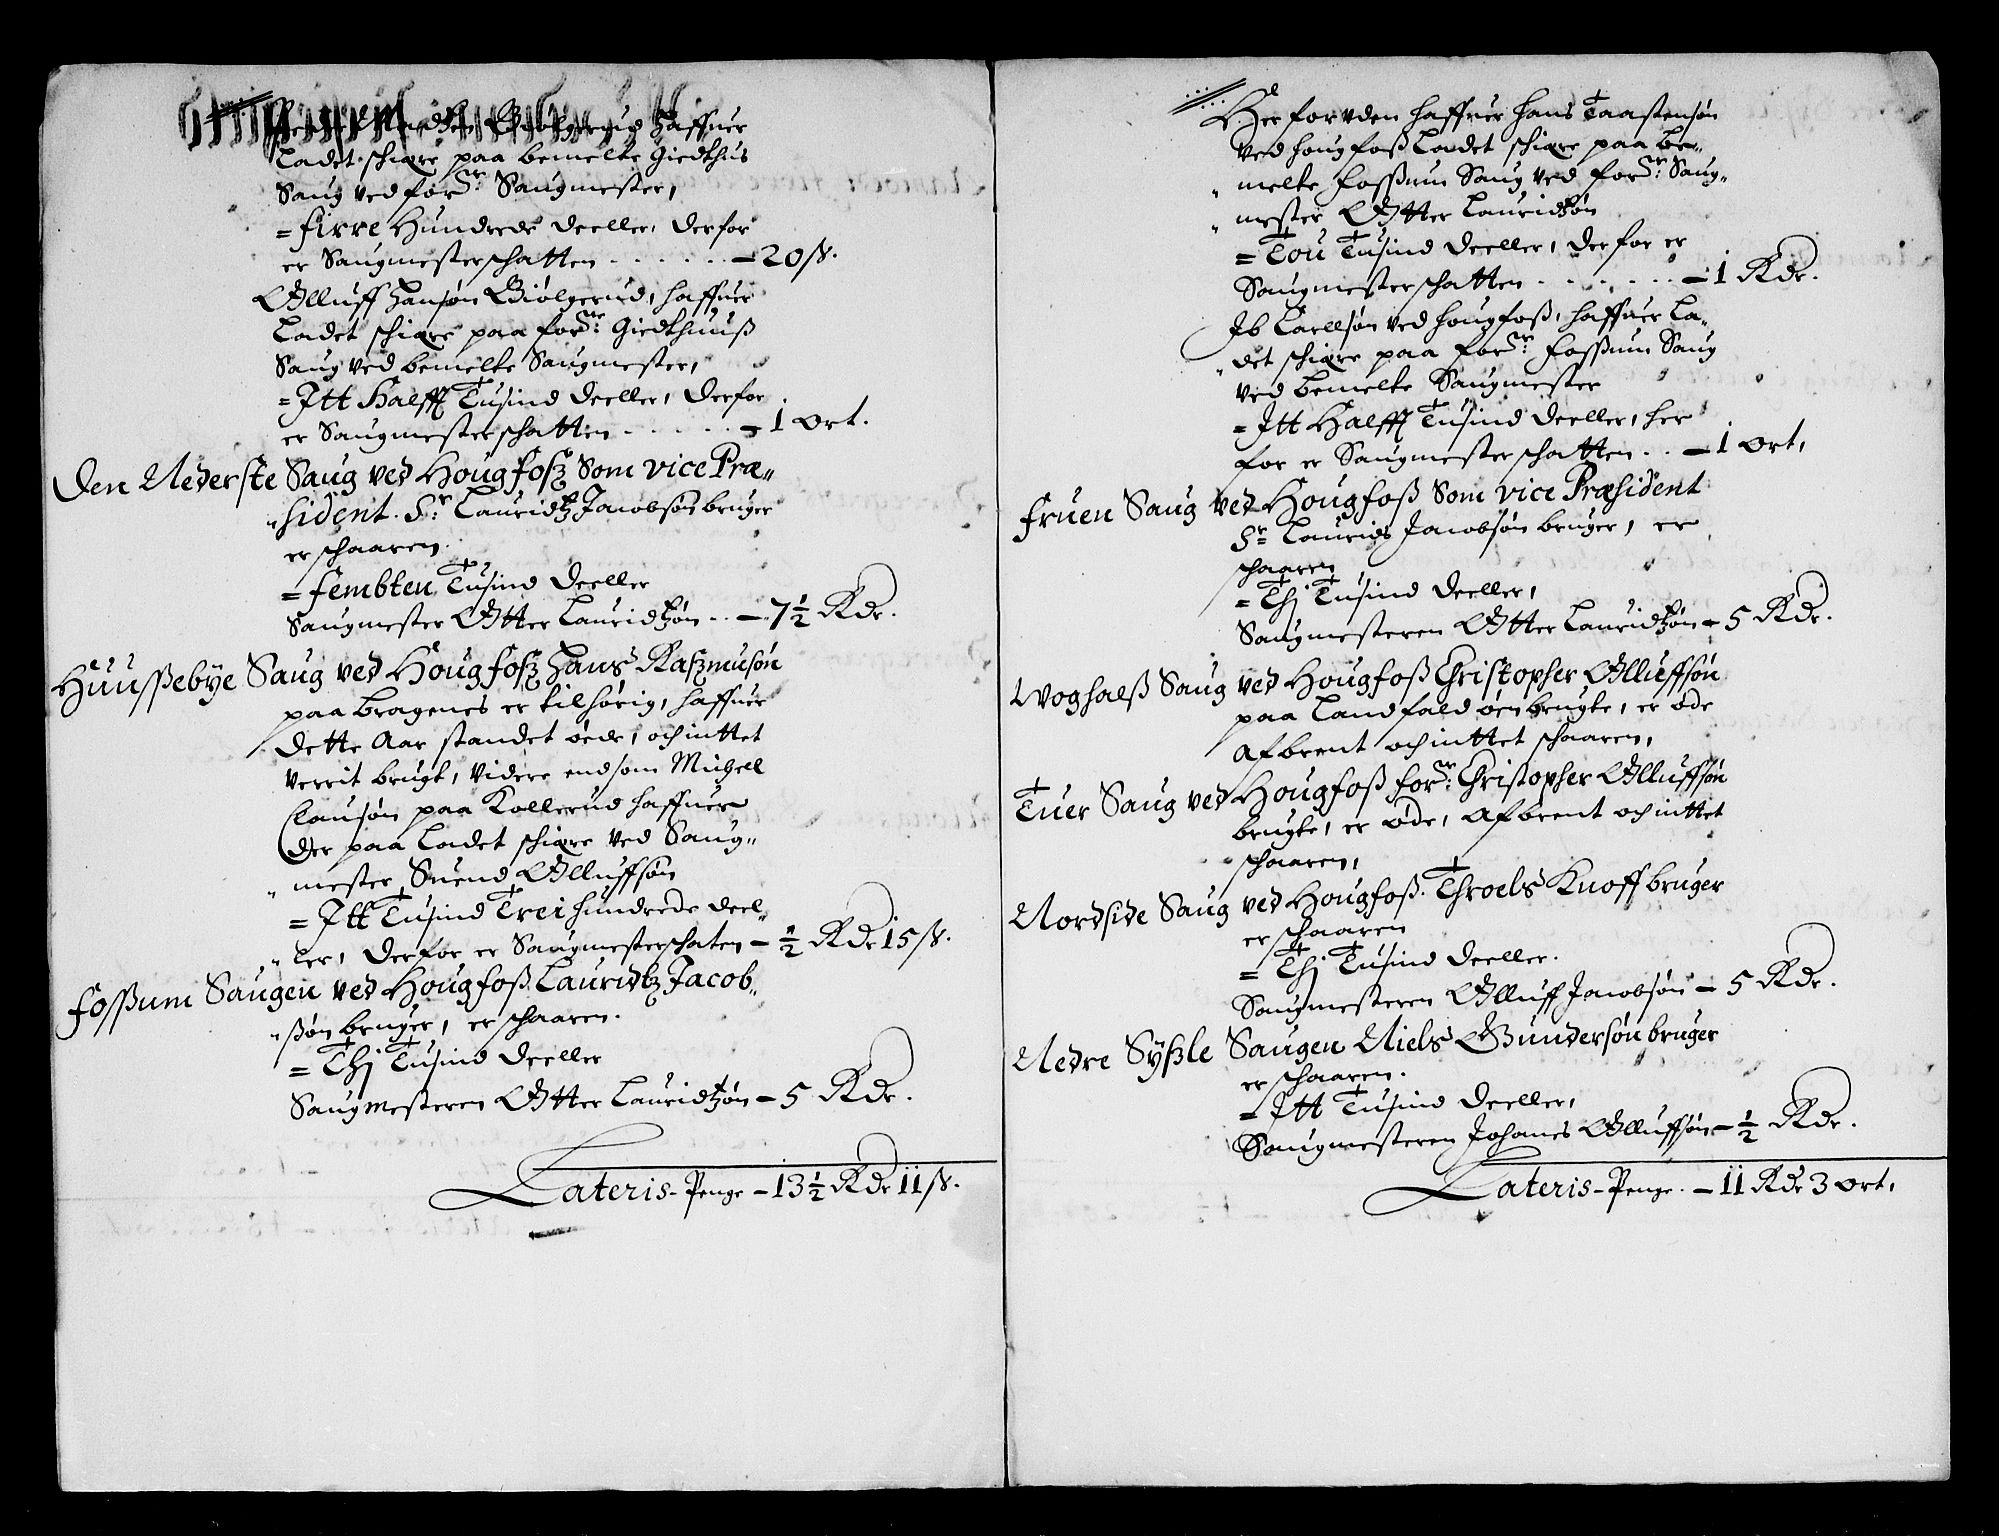 haffuer
Ladet schiære paa bemelte Giedthus
Saug ved for.ne Saugmester,
= firre Hundrede Deeller, Derfor
er Saugmesterschatten - 20 ß.
Olluff Hansøn Giølgerud, haffuer
Ladet schiære paa for.ne Giedthuuß
Saug ved bemelte Saugmester,
= Itt Halff Tusind Deeller, Derfor
er Saugmesterschatten - 1 ort.
Den Nederste Saug ved Hougfosz Som vice Præ-
sident. Sr. Lauridtz Jacobsøn bruger
er schaaren.
= fembten Tusind Deeller
Saugmester Otter Lauridtzøn - 7 1/2 Rdr.
Huussebye Saug ved Hougfosz Hans Raszmusøn
paa Bragenes er tilhørig, haffuer
Dette Aar standet öede, och inttet
verrit brugt, Videre end som Michell
Clausøn paa Kollerud haffuer
Der paa Ladet schiære ved Saug-
mester Suend Olluffsøn
= Itt Tusind Trei hundrede Deel-
ler, Derfor er Saugmesterschaten - 1/2 Rdr 15 ß.
Fossum Saugen ved Hougfoß Lauridtz Jacob-
søn bruger, er schaaren.
= Thi Tusind Deeller
Saugmesteren Otter Lauridtzøn - 5 Rdr.
Lateris - Penge - 13 1/2 Rdr 11 ß.
Her foruden haffuer Hans Taastensøn
ved Hougfoß Ladet schiære paa be-
melte Fossum Saug ved for.ne Saug-
mester Otter Lauridtzøn
= Tou Tusind Deeller, Derfor er
Saugmesterschatten - 1 Rdr.
Ib Carllsøn ved Hougfoß, haffuer La-
det schiære paa for.ne Fossum Saug
ved bemelte Saugmester
= Itt Halff Tusind Deeller, her
for er Saugmesterschatten - 1 ort,
Fruen Saug ved Hougfoß Som vice Præsident
Sr. Laurids Jacobsøn bruger, er
schaaren
= Thi Tusind Deeller,
Saugmesteren Otter Lauridtzøn - 5 Rdr.
Woghalß Saug ved Hougfoß Christopher Olluffsøn
paa Landfald öen brugte, er øde
Afbrent och inttet schaaren,
Tuer Saug ved Hougfoß for.ne Christopher Olluffsøn
brugte, er øde, Afbrent och inttet
schaaren,
Nordside Saug ved Hougfoß. Throels Knoff bruger
er schaaren
= Thi Tusind Deeller.
Saugmesteren Olluff Jacobsøn - 5 Rdr.
Nedre Syszle Saugen Niels Gundersøn bruger
er schaaren.
= Itt Tusind Deeller,
Saugmesteren Johanes Olluffsøn - 1/2 Rdr.
Lateris - Penge. - 11 Rdr 3 ort,